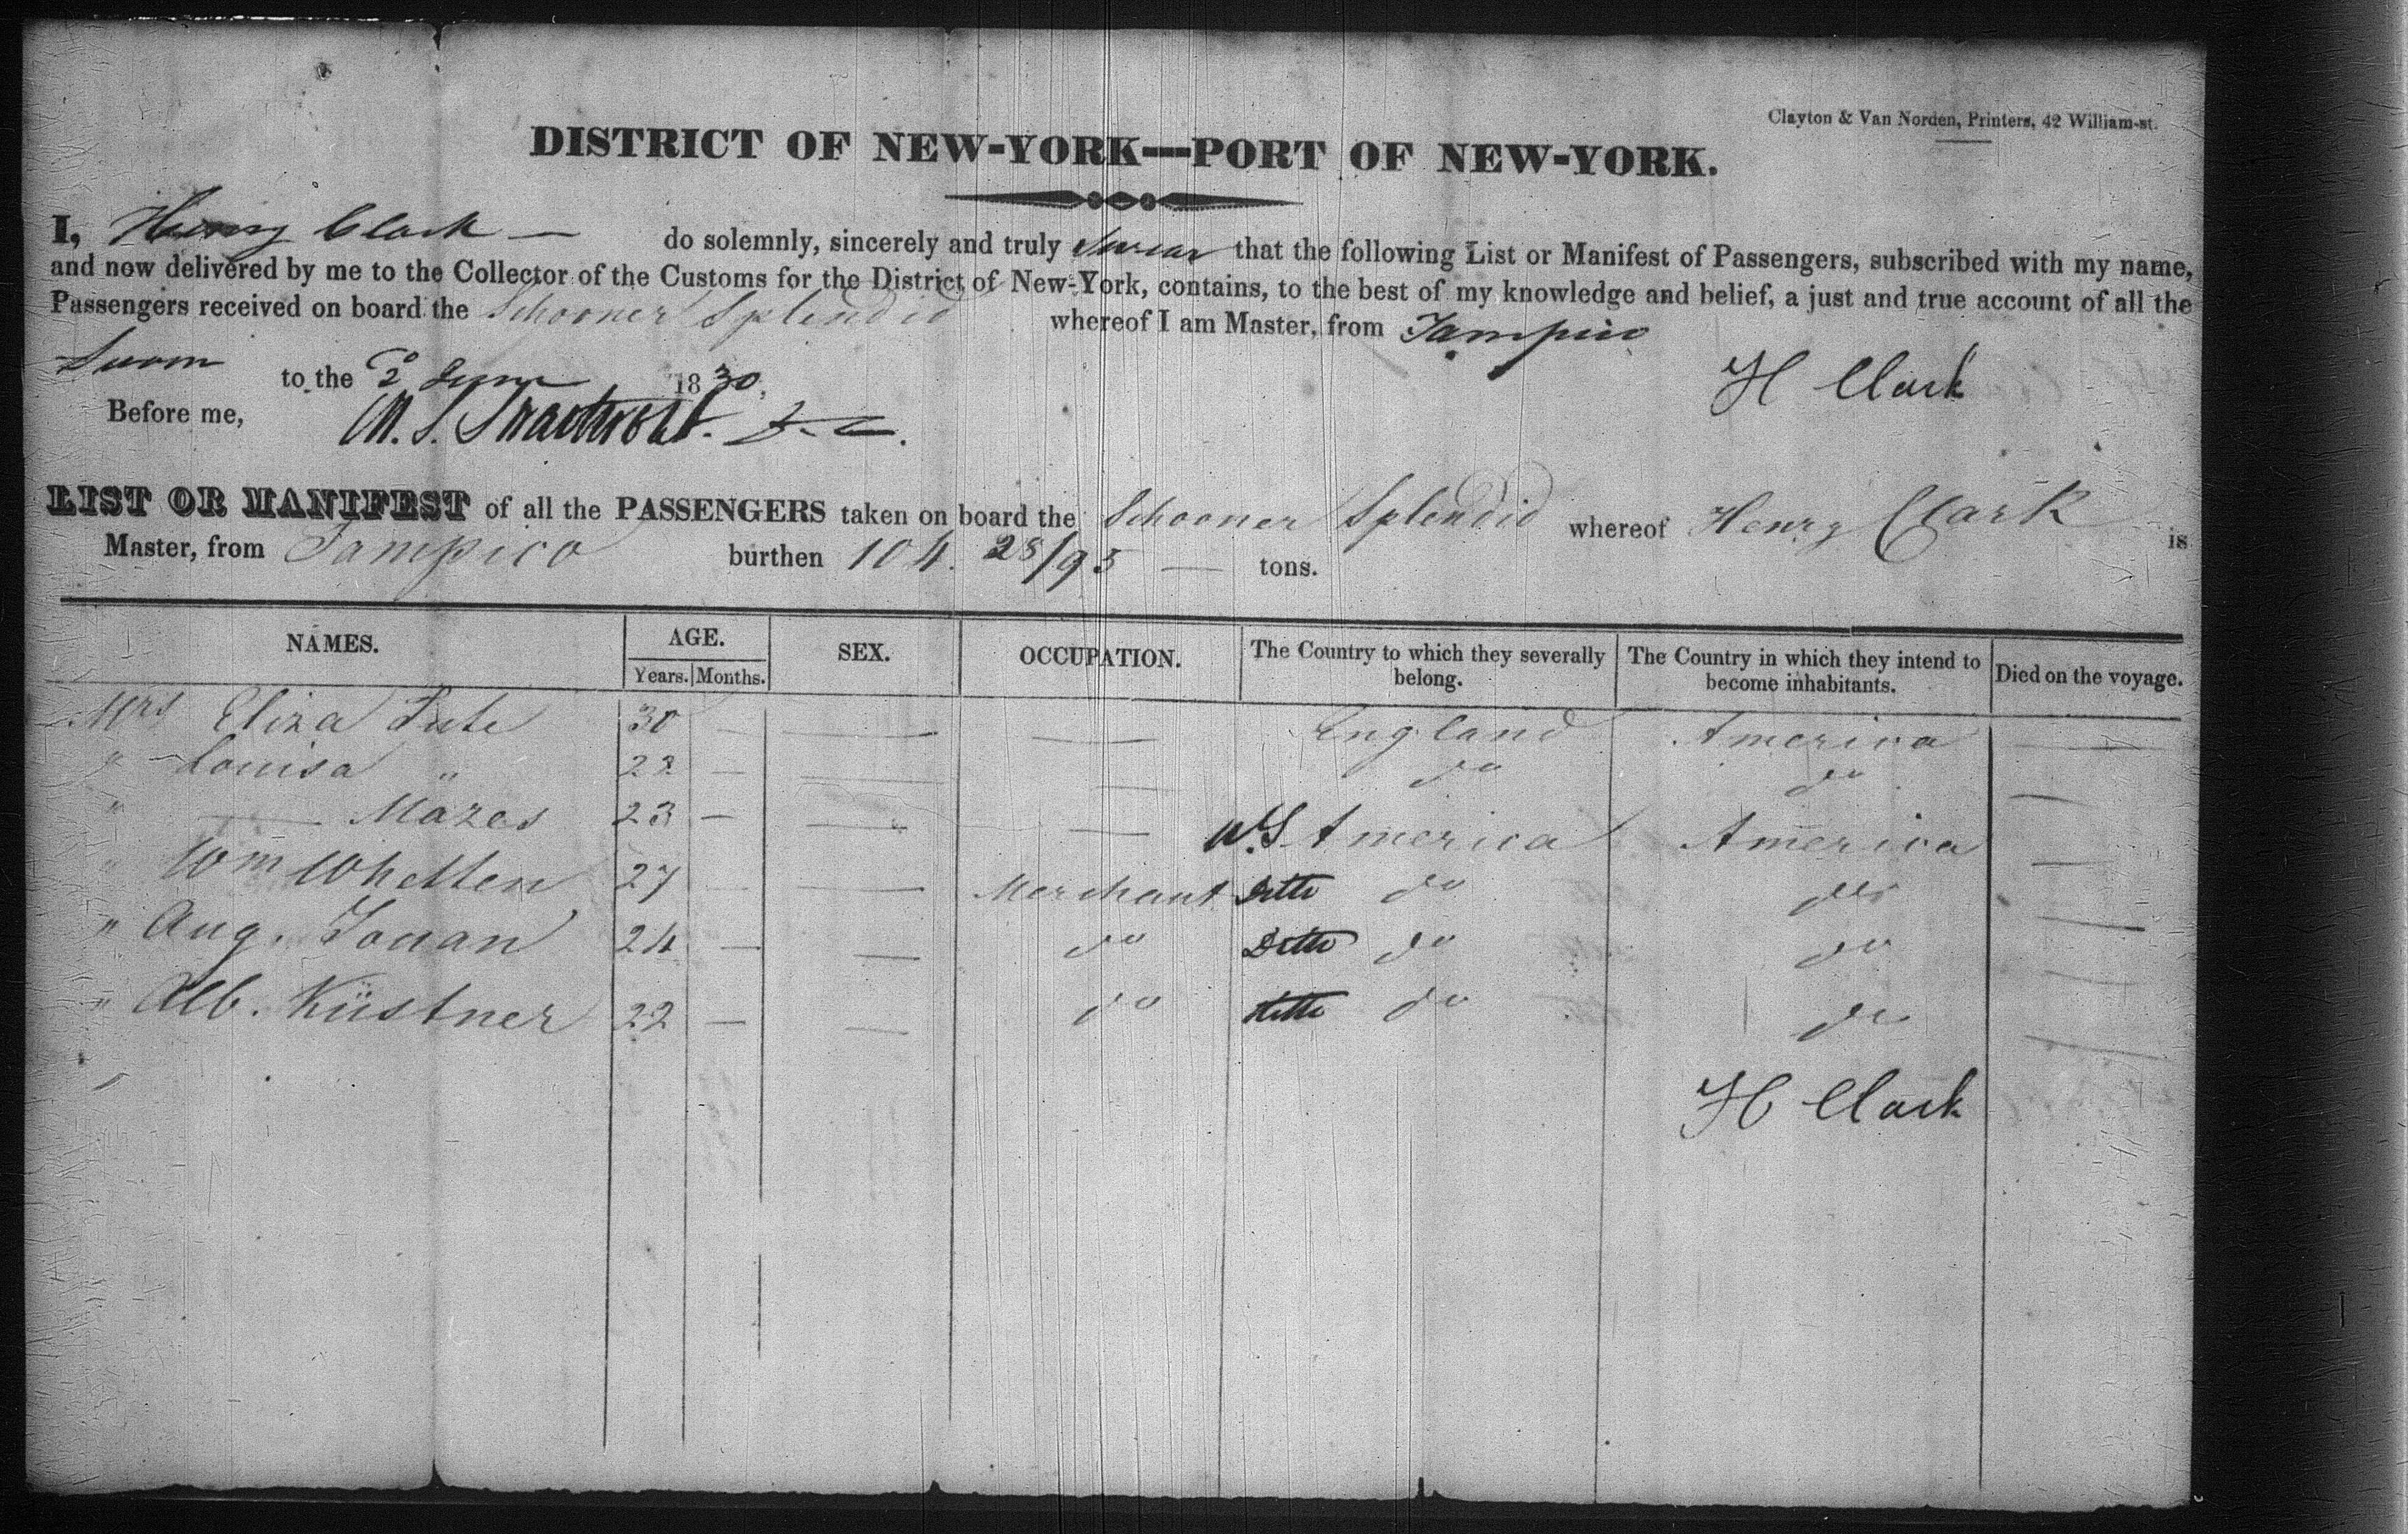 Clayton & Van Norden, Printers, 42 William-st.
DISTRICT OF NEW-YORK—PORT OF NEW-YORK.
I, Henry Clark — do solemnly, sincerely and truly Swear that the following List or Manifest of Passengers, subscribed with my name,
and now delivered by me to the Collector of the Customs for the District of New-York, contains, to the best of my knowledge and belief, a just and true account of all the
Passengers received on board the Schooner Splendid whereof I am Master, from Tampico
Sworn to the 2 June 1830,
H Clark
Before me,
LIST OR MANIFEST of all the PASSENGERS taken on board the Schooner Splendid whereof Henry Clark is
Master, from Tampico burthen 104. 28/95 — tons.
NAMES. AGE. SEX. OCCUPATION. The Country to which they severally belong. The Country in which they intend to become inhabitants. Died on the voyage.
Years. Months.
Mrs Eliza 30 — — — England America —
" Louisa " 22 — — — do do —
" — Mazes 23 — — — U.S. America America —
" Wm Whetten 27 — — Merchant Ditto do do —
" Aug. 24 — — do Ditto do do —
" Alb. Küstner 22 — — do Ditto do do —
H Clark